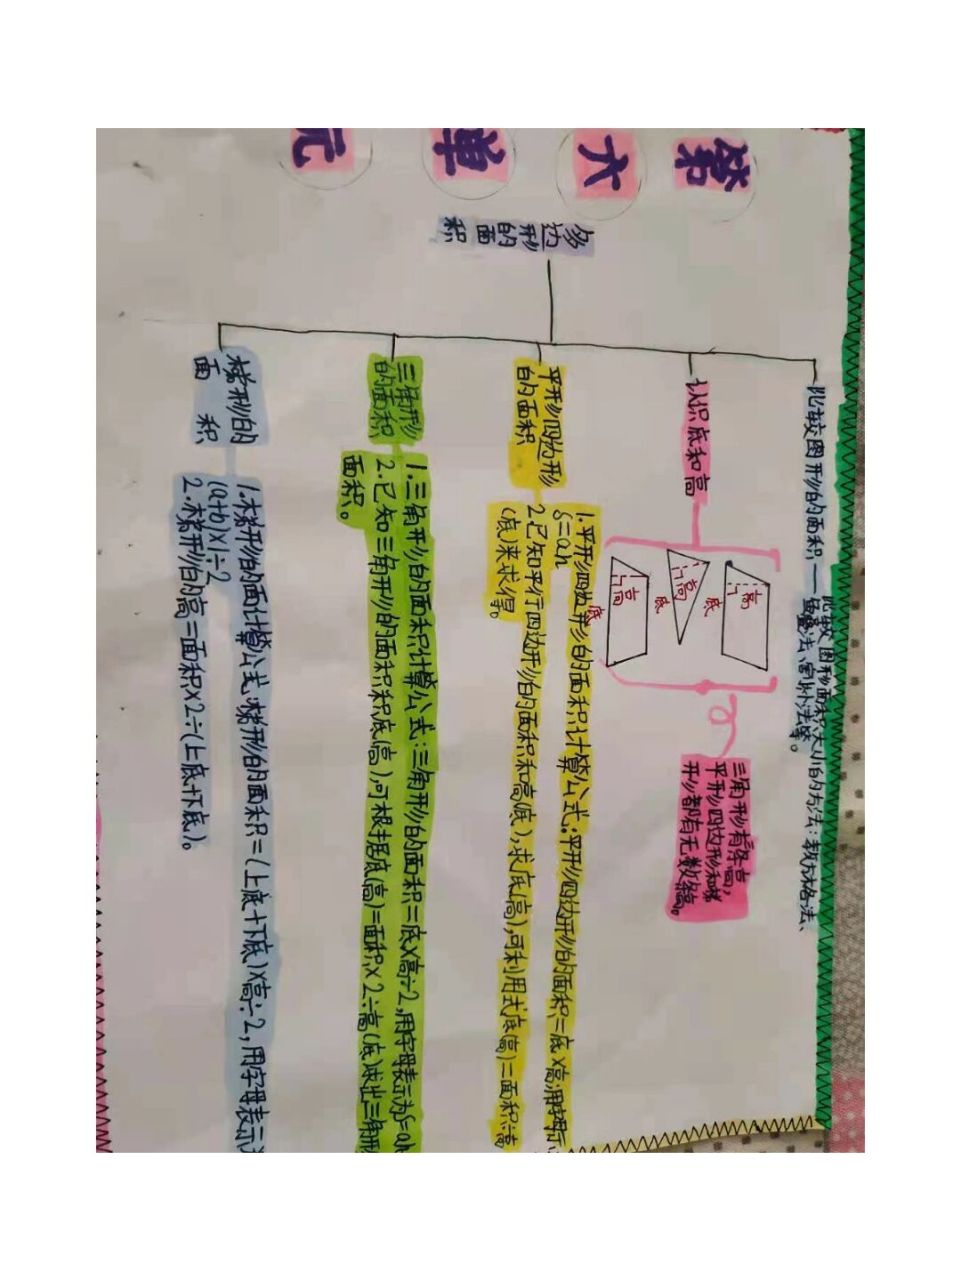 第六单元
多边
形
的面
积
比较图形的面积——比较图形面积大小的方法:数方格法、
割补法等。
认识底和高
高
高
底
高
底
三角形有三条高,
平形四边形和梯
形都有无数条高。
平形四边形
的面积
1.平形四边形的面积计算公式:平形四边形的面积=底×高,用字母示
S=ah
2.已知平行四边形的面积和高(底),求底(高),可利用式底(高)=面积÷高
(底)来求得。
三角形
的面积
1.三角形的面积计算公式:三角形的面积=底×高÷2,用字母表示为S=ah
2.已知三角形的面积和底(高),可根据底(高)=面积×2÷高(底)求出三角形
面积。
梯形的
面 积
1.梯形的面计算公式:梯形的面积=(上底+下底)×高÷2,用字母表示
(a+b)×1÷2
2.梯形的高=面积×2÷(上底+下底)。